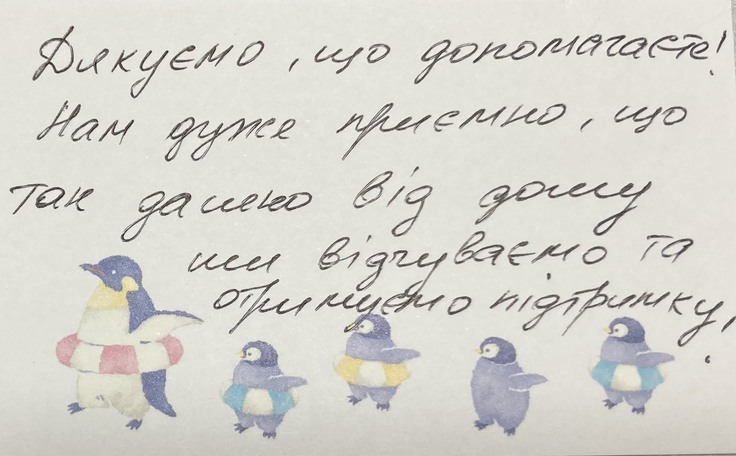 Дякуємо, що допомагаєте!
Нам дуже приємно, що
так далеко від дому
ми відчуваємо та
отримуємо підтримку!